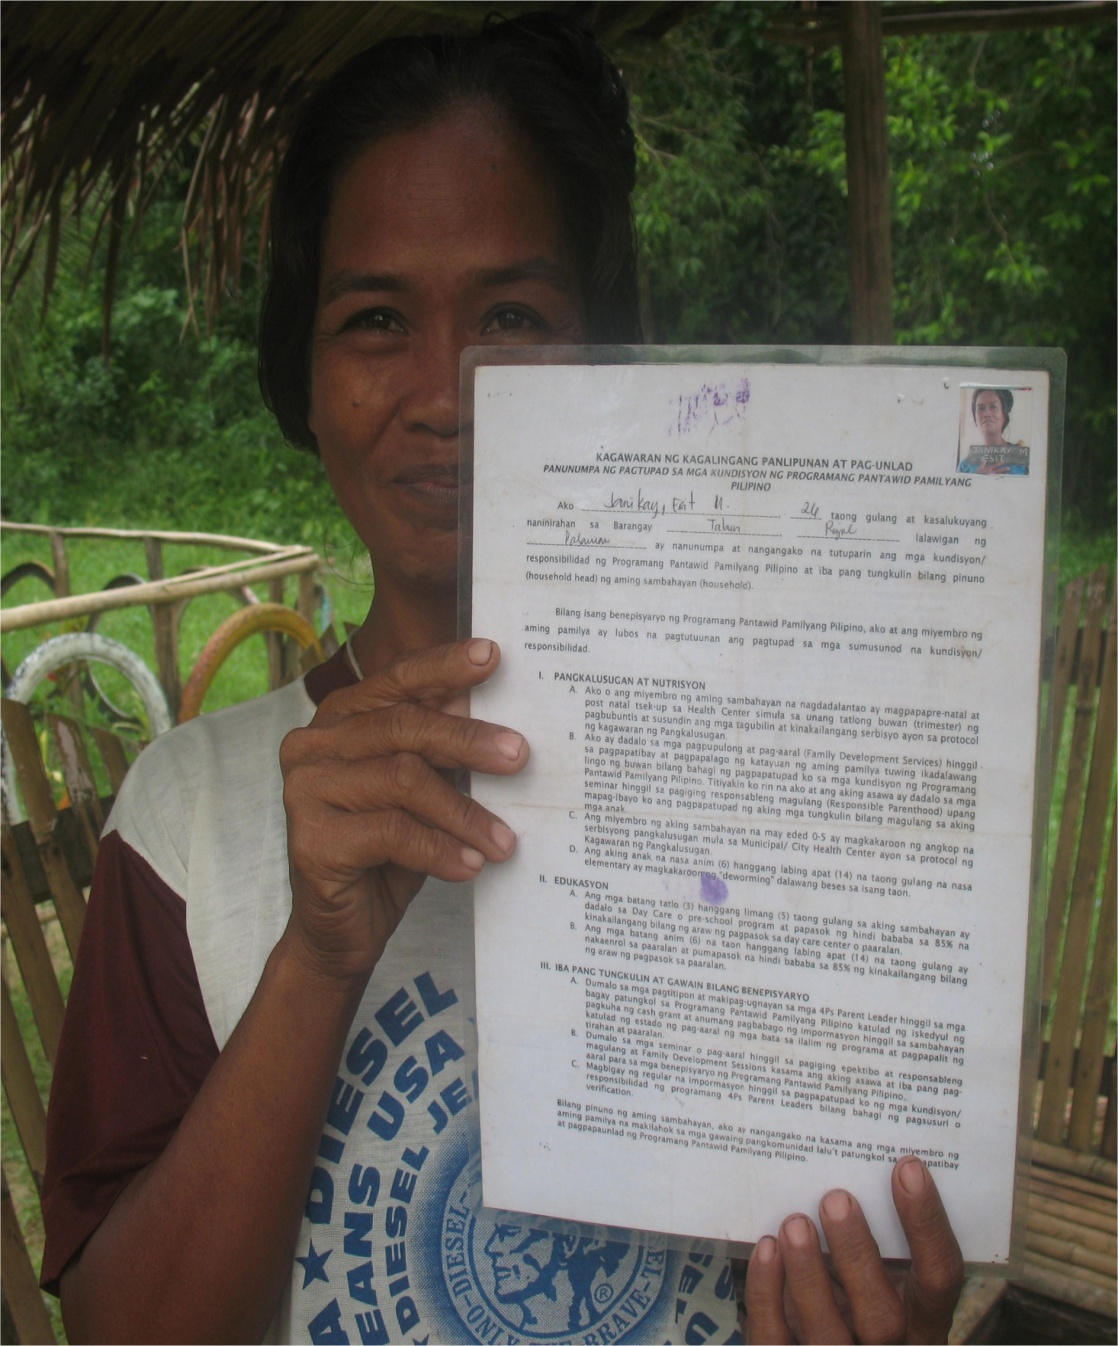 KAGAWARAN NG KAGALINGANG PANLIPUNAN AT PAG-UNLAD
PANUNUMPA NG PAGTUPAD SA MGA KUNDISYON NG PROGRAMANG PANTAWID PAMILYANG
PILIPINO
JANIKAY M
ESIT
Ako Janikay, Esit M. 24 taong gulang at kasalukuyang
naninirahan sa Barangay Tabun Rizal lalawigan ng
Palawan ay nanunumpa at nangangako na tutuparin ang mga kundisyon/
responsibilidad ng Programang Pantawid Pamilyang Pilipino at iba pang tungkulin bilang pinuno
(household head) ng aming sambahayan (household).
Bilang isang benepisyaryo ng Programang Pantawid Pamilyang Pilipino, ako at ang miyembro ng
aming pamilya ay lubos na pagtutuunan ang pagtupad sa mga sumusunod na kundisyon/
responsibilidad.
I. PANGKALUSUGAN AT NUTRISYON
A. Ako o ang miyembro ng aming sambahayan na nagdadalantao ay magpapapre-natal at
post natal tsek-up sa Health Center simula sa unang tatlong buwan (trimester) ng
pagbubuntis at susundin ang mga tagubilin at kinakailangang serbisyo ayon sa protocol
ng kagawaran ng Pangkalusugan.
B. Ako ay dadalo sa mga pagpupulong at pag-aaral (Family Development Services) hinggil
sa pagpapatibay at pagpapalago ng katayuan ng aming pamilya tuwing ikadalawang
lingo ng buwan bilang bahagi ng pagpapatupad ko sa mga kundisyon ng Programang
Pantawid Pamilyang Pilipino. Titiyakin ko rin na ako at ang aking asawa ay dadalo sa mga
seminar hinggil sa pagiging responsableng magulang (Responsible Parenthood) upang
mapag-ibayo ko ang pagpapatupad ng aking mga tungkulin bilang magulang sa aking
mga anak.
C. Ang miyembro ng aking sambahayan na may eded 0-5 ay magkakaroon ng angkop na
serbisyong pangkalusugan mula sa Municipal/ City Health Center ayon sa protocol ng
Kagawaran ng Pangkalusugan.
D. Ang aking anak na nasa anim (6) hanggang labing apat (14) na taong gulang na nasa
elementary ay magkakaroon ng "deworming" dalawang beses sa isang taon.
II. EDUKASYON
A. Ang mga batang tatlo (3) hanggang limang (5) taong gulang sa aking sambahayan ay
dadalo sa Day Care o pre-school program at papasok ng hindi bababa sa 85% na
kinakailangang bilang ng araw ng pagpasok sa day care center o paaralan.
B. Ang mga batang anim (6) na taon hanggang labing apat (14) na taong gulang ay
nakaenrol sa paaralan at pumapasok na hindi bababa sa 85% ng kinakailangang bilang
ng araw ng pagpasok sa paaralan.
III. IBA PANG TUNGKULIN AT GAWAIN BILANG BENEPISYARYO
A. Dumalo sa mga pagtitipon at makipag-ugnayan sa mga 4Ps Parent Leader hinggil sa mga
bagay patungkol sa Programang Pantawid Pamilyang Pilipino katulad ng iskedyul ng
pagkuha ng cash grant at anumang pagbabago ng impormasyon hinggil sa sambahayan
katulad ng estado ng pag-aaral ng mga bata sa ilalim ng programa at pagpapalit ng
tirahan at paaralan.
B. Dumalo sa mga seminar o pag-aaral hinggil sa pagiging epektibo at responsableng
magulang at Family Development Sessions kasama ang aking asawa at iba pang pag-
aaral para sa mga benepisyaryo ng Programang Pantawid Pamilyang Pilipino.
C. Magbigay ng regular na impormasyon hinggil sa pagpapatupad ko ng mga kundisyon/
responsibilidad ng programang 4Ps Parent Leaders bilang bahagi ng pagsusuri o
verification.
Bilang pinuno ng aming sambahayan, ako ay nangangako na kasama ang mga miyembro ng
aming pamilya na makilahok sa mga gawaing pangkomunidad lalu't patungkol sa
at pagpapaunlad ng Programang Pantawid Pamilyang Pilipino.
DIESEL
USA
EANS
DIESEL JE
DIESEL
ONLY THE BRAVE
®